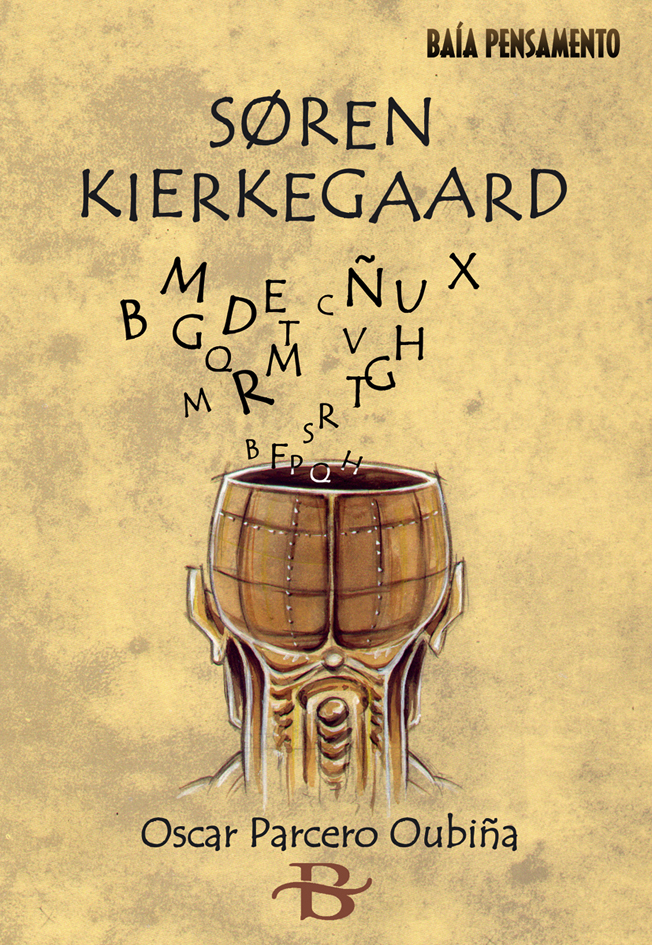 BAÍA PENSAMENTO
SØREN
KIERKEGAARD
B M G D E C Ñ U X
Q T M V G H
M R T
S R
B F P Q H
Oscar Parcero Oubiña
B